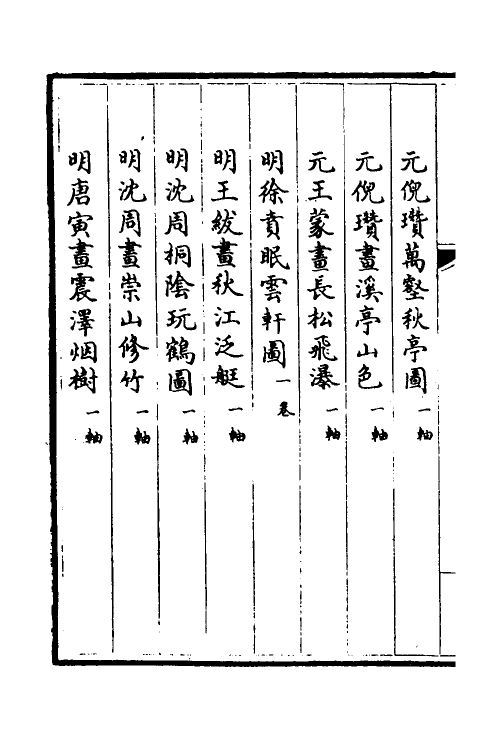 元倪瓚萬壑秋亭圖一軸
元倪瓚畫溪亭山色一軸
元王蒙畫長松飛瀑一軸
明徐賁眠雲軒圖一卷
明王紱畫秋江泛艇一軸
明沈周桐陰玩鶴圖一軸
明沈周畫崇山修竹一軸
明唐寅畫震澤烟樹一軸